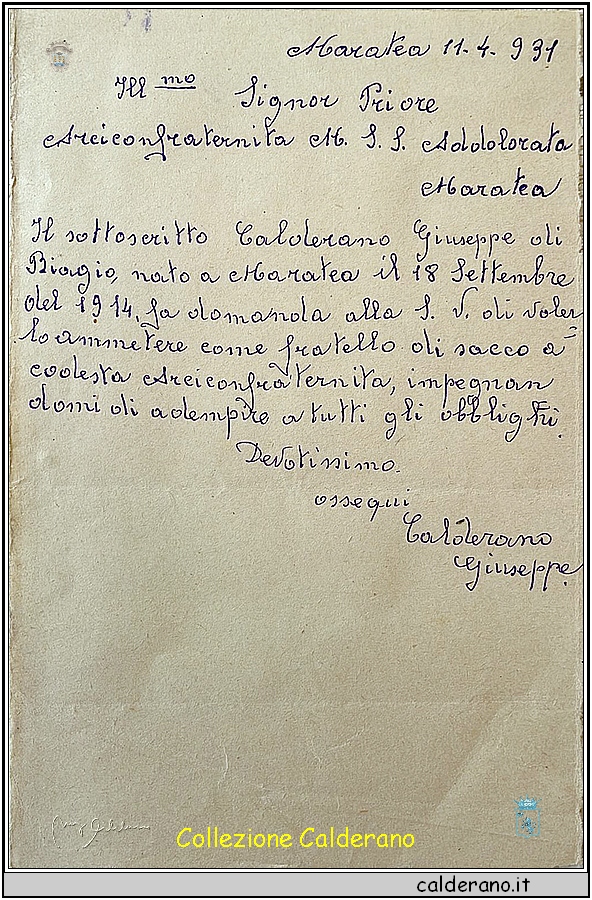 Maratea 11-4-931
Ill mo Signor Priore
Arciconfraternita M. S. S. Addolorata
Maratea
Il sottoscritto Calderano Giuseppe di
Biagio, nato a Maratea il 18 Settembre
del 1914, fa domanda alla S. V. di voler-
lo ammetere come fratello di sacco a
codesta Arciconfraternita, impegnan
domi di adempire a tutti gli obblighi.
Devotissimo.
ossequi
Calderano
Giuseppe.
Collezione Calderano
calderano.it